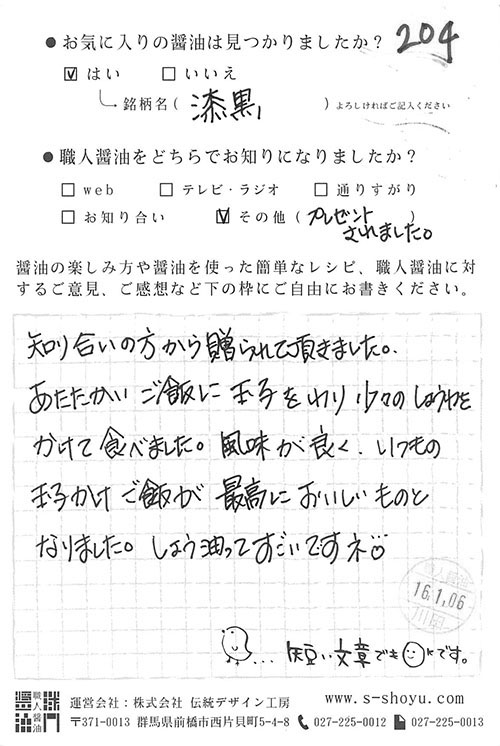 ●お気に入りの醤油は見つかりましたか？ 204
☑はい □いいえ
銘柄名( 漆黒 ) よろしければご記入ください
●職人醤油をどちらでお知りになりましたか？
□web □テレビ・ラジオ □通りすがり
□お知り合い ☑その他(プレゼント
されました。)
醤油の楽しみ方や醤油を使った簡単なレシピ、職人醤油に対
するご意見、ご感想など下の枠にご自由にお書きください。
知り合いの方から贈られて頂きました。
あたたかいご飯に玉子をわり少々のしょうゆを
かけて食べました。風味が良く、いつもの
玉子かけご飯が最高においしいものと
なりました。しょう油ってすごいですネ
職人醤油
16.1.06
川田
... 短い文章でもOKです。
職人醤油
運営会社：株式会社 伝統デザイン工房 www.s-shoyu.com
〒371-0013 群馬県前橋市西片貝町5-4-8 027-225-0012 027-225-0013